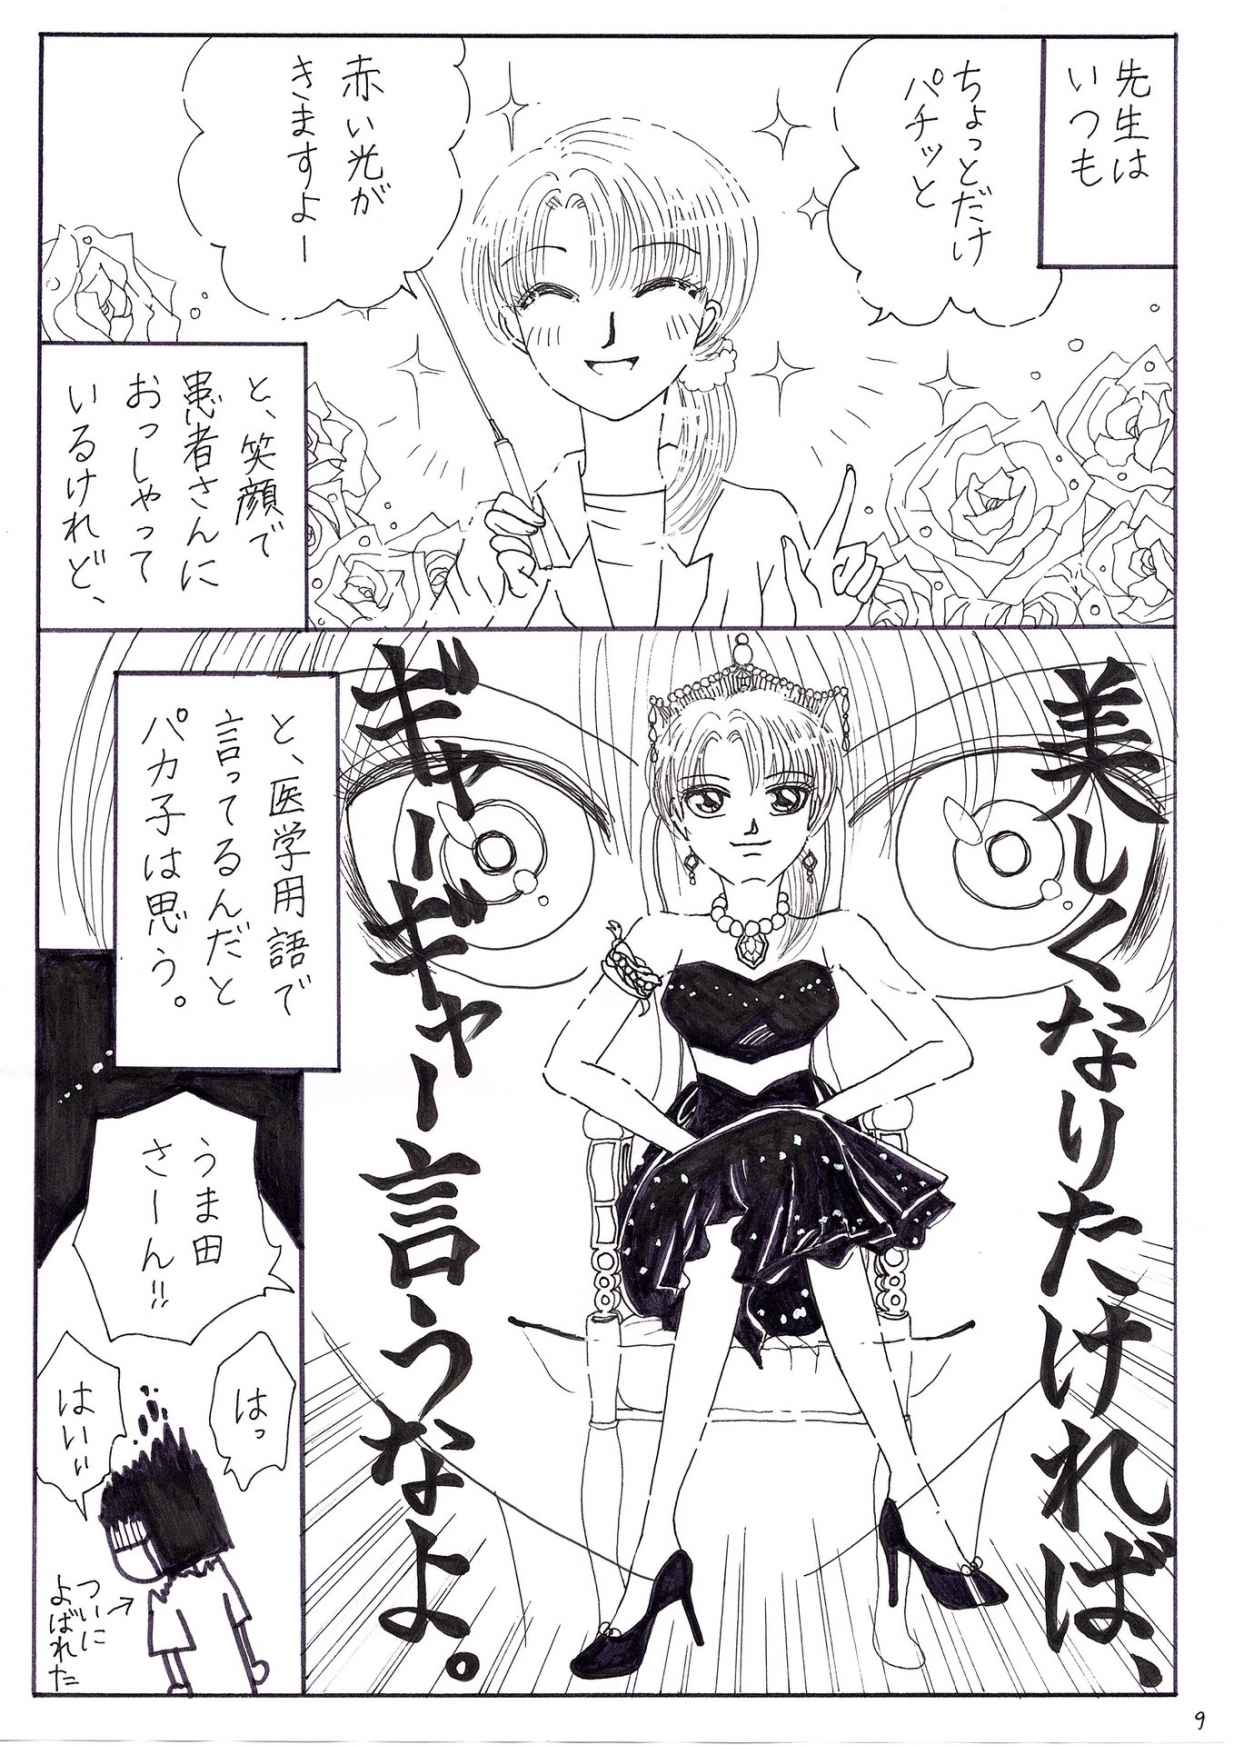 先生は
いつも
ちょっとだけ
パチッと
赤い光が
きますよー
と、笑顔で
患者さんに
おっしゃって
いるけれど、
美しくなりたければ、
ギャーギャー言うなよ。
と、医学用語で
言ってるんだと
パカ子は思う。
うま田
さーん!!
はっ
はいぃ
ついに
よばれた
9